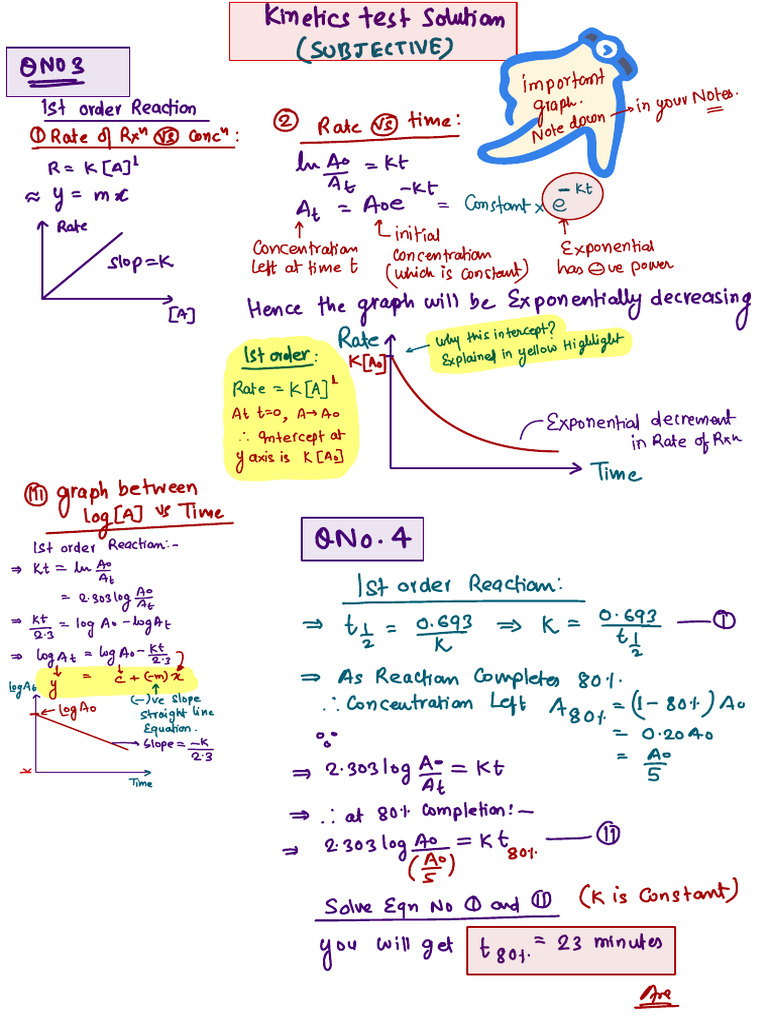 Kinetics test Solution
(SUBJECTIVE)
QNO 3
1st order Reaction
① Rate of Rxⁿ VS concⁿ:
R = K[A]¹
≈ y = mx
Rate
slop=K
[A]
② Rate VS time:
ln A₀/Aₜ = Kt
Aₜ = A₀e^-Kt = Constant × e^-Kt
Concentration left at time t
initial concentration (which is constant)
Exponential has ⊖ve power
important
graph.
Note down → in your Notes.
Hence the graph will be Exponentially decreasing
Rate
K[A₀]
why this intercept?
Explained in yellow Highlight
Exponential decrement
in Rate of Rxn
Time
1st order:
Rate = K[A]¹
At t=0, A→A₀
∴ Intercept at
y axis is K[A₀]
graph between
log[A] vs Time
1st order Reaction:-
⇒ Kt = ln A₀/Aₜ
= 2.303 log A₀/Aₜ
⇒ Kt/2.3 = log A₀ - log Aₜ
⇒ log Aₜ = log A₀ - Kt/2.3
y = c + (-m)x
log Aₜ
log A₀
(-)ve slope
straight line
Equation.
slope = -K/2.3
Time
QNo. 4
1st order Reaction:
⇒ t½ = 0.693/K ⇒ K = 0.693/t½ — ①
⇒ As Reaction Completes 80%.
∴ Concentration Left A80% = (1 - 80%) A₀
= 0.20 A₀
= A₀/5
∵
⇒ 2.303 log A₀/Aₜ = Kt
⇒ ∴ at 80% Completion:-
⇒ 2.303 log A₀/(A₀/5) = K t80% — ⑪
Solve Eqn No ① and ⑪ (K is Constant)
you will get t80% = 23 minutes